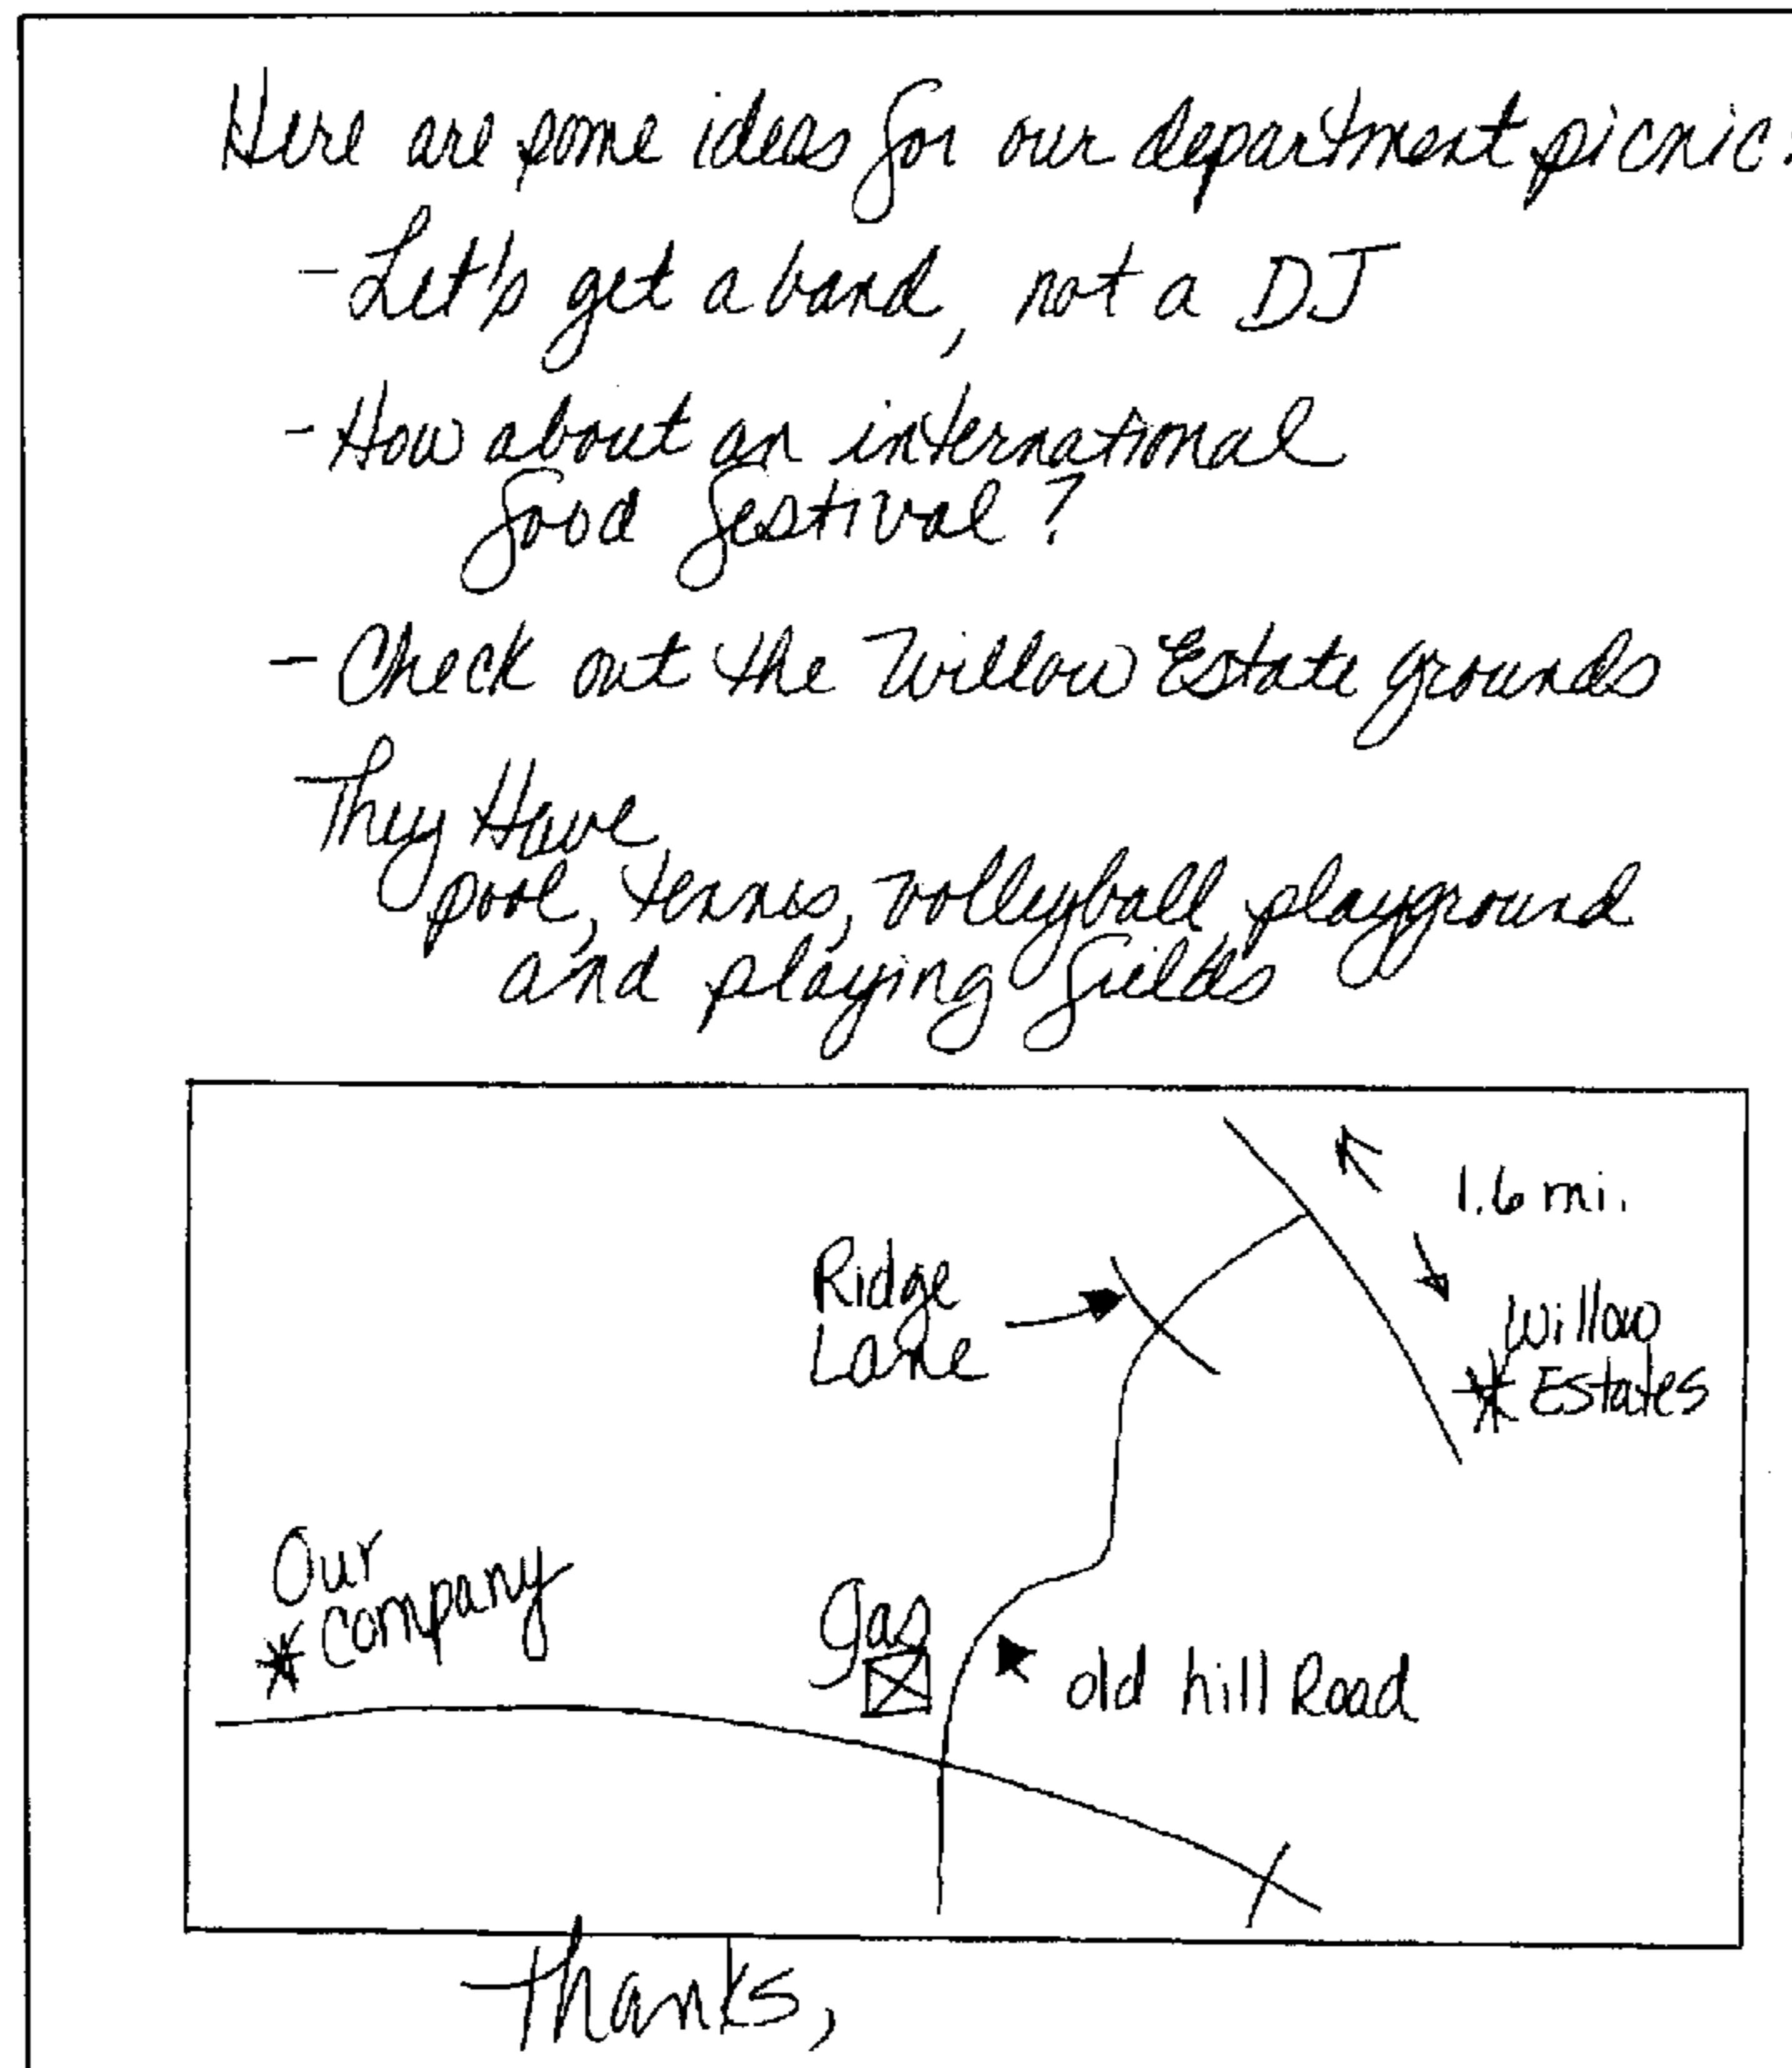 Here are some ideas for our department picnic:
- Let's get a band, not a DJ
- How about an international
food festival?
- Check out the Willow Estate grounds
They Have
pool, tennis, volleyball, playground
and playing fields
1.6 mi.
Ridge
Lane
Willow
Estates
Our
Company
gas
old hill Road
Thanks,